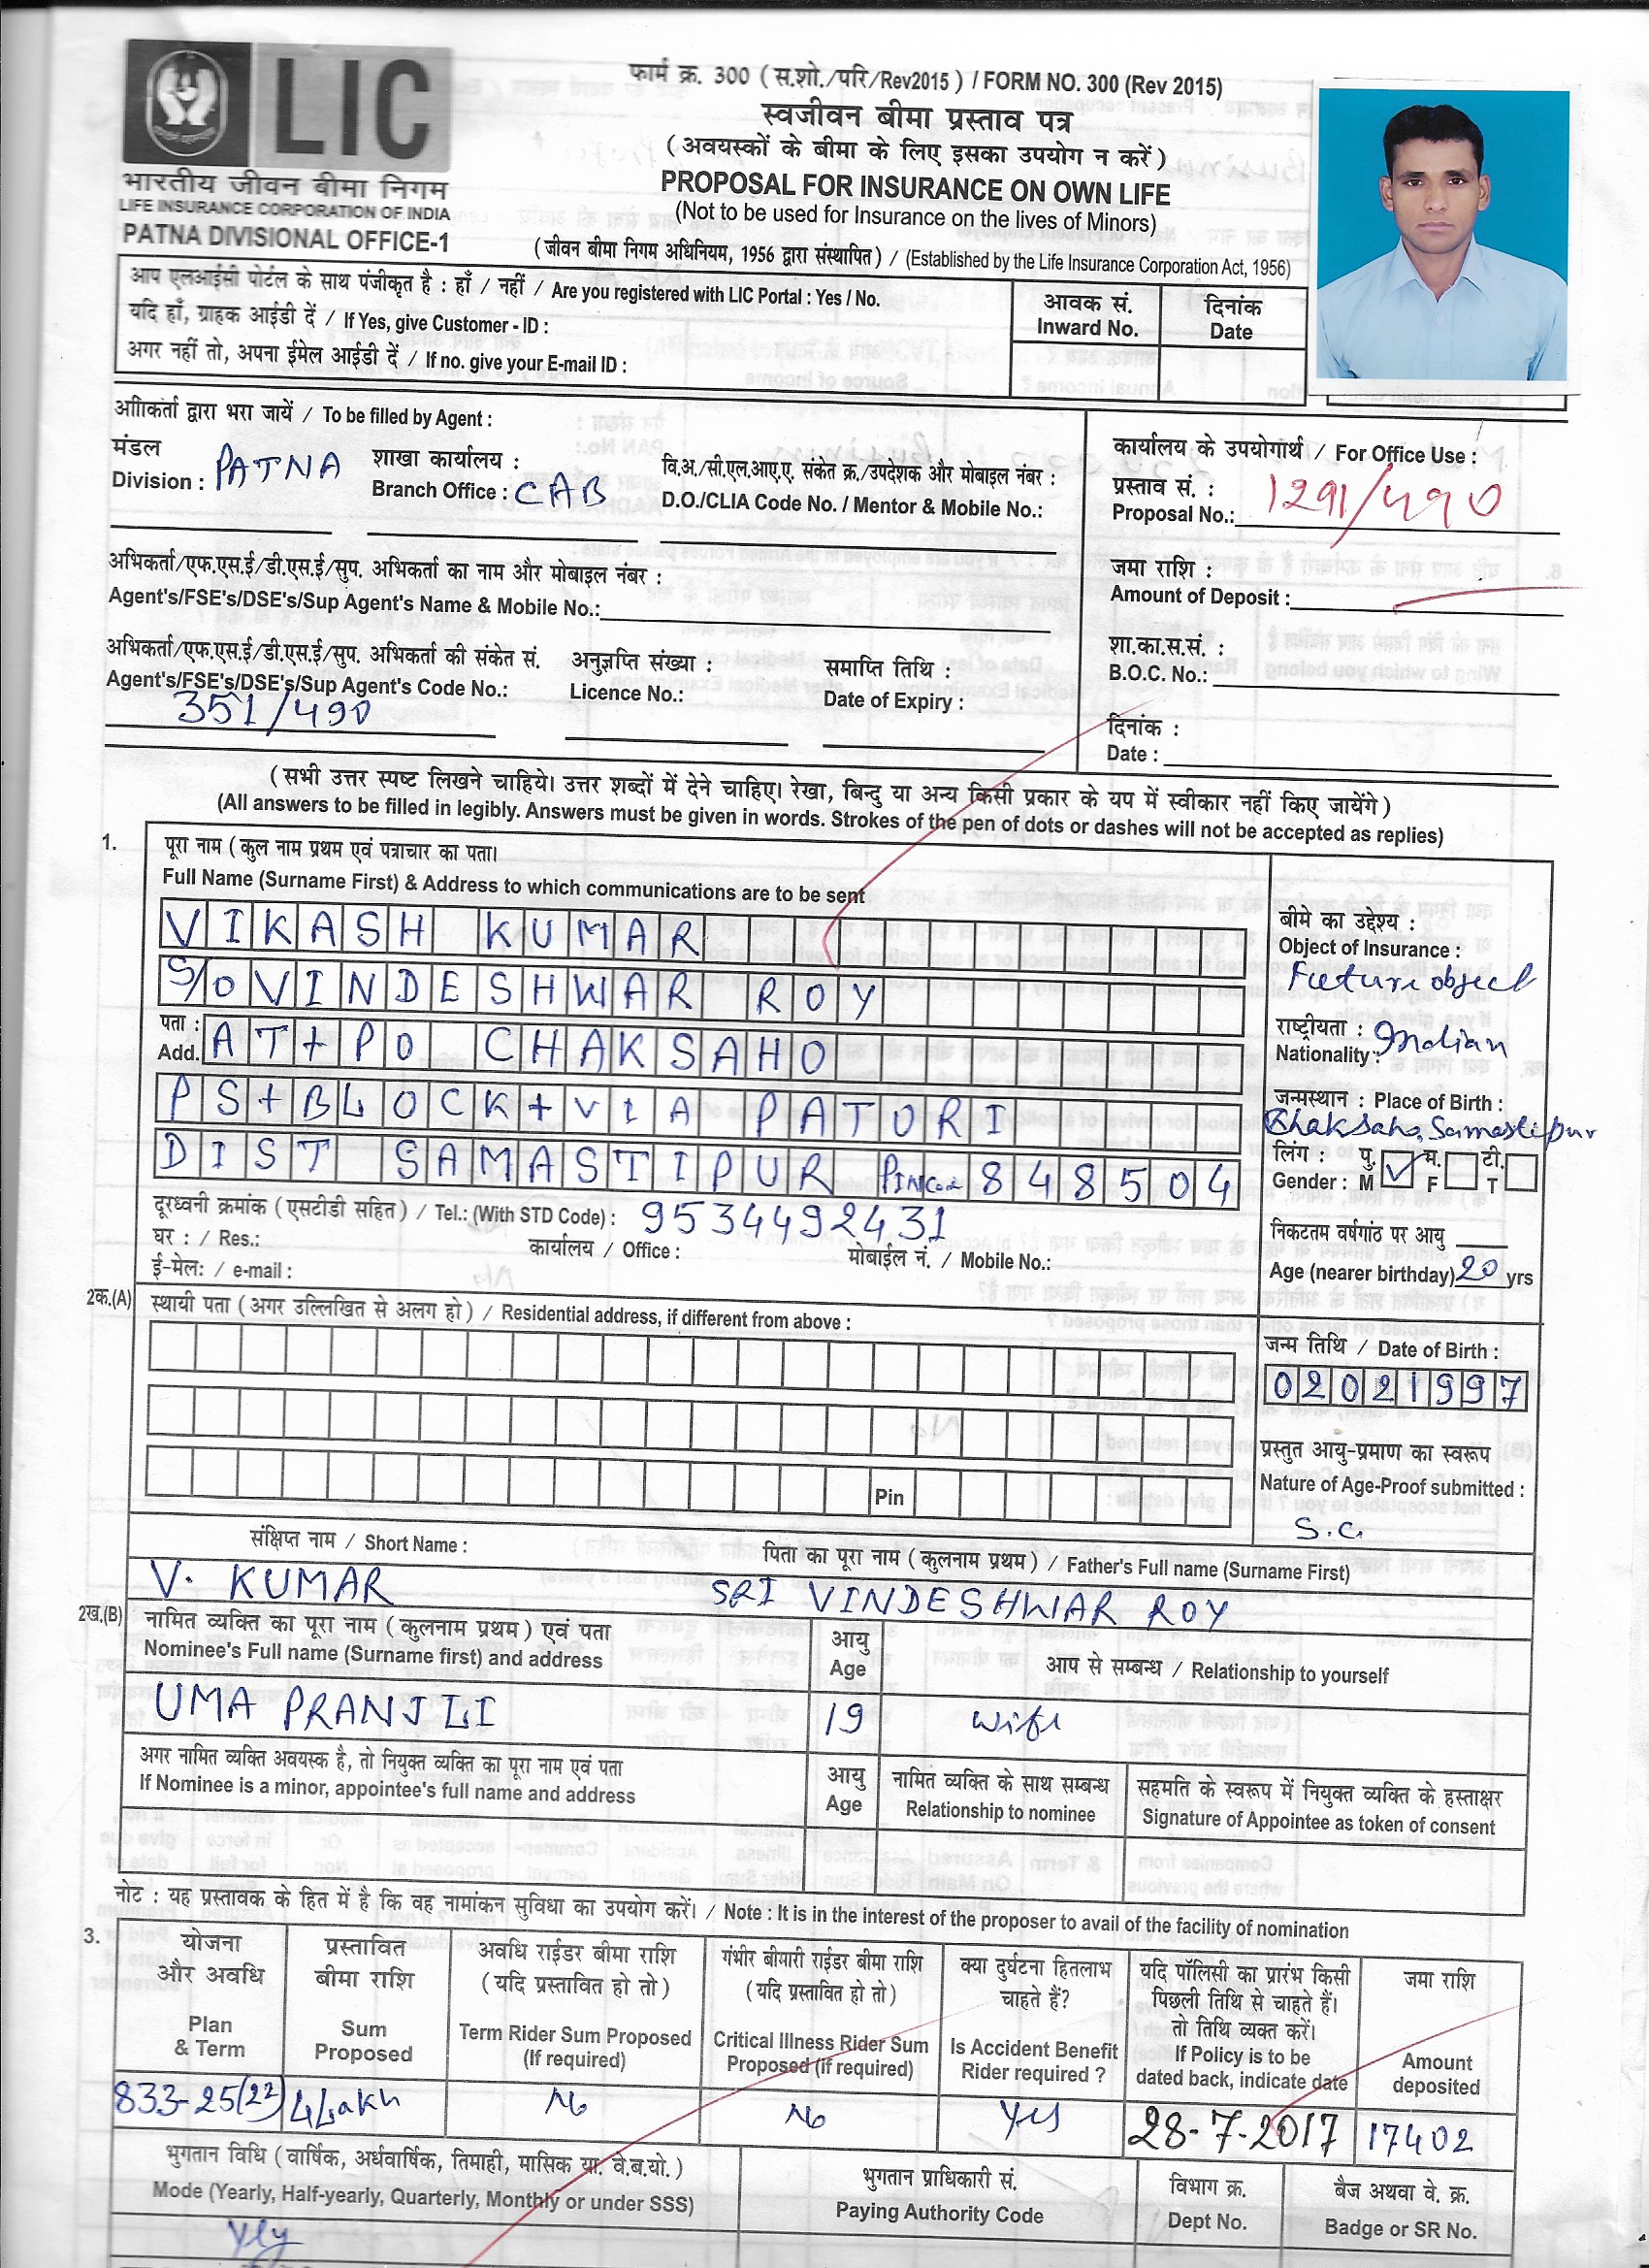 फार्म क्र. 300 ( स.शो./परि/Rev2015 ) / FORM NO. 300 (Rev 2015)
स्वजीवन बीमा प्रस्ताव पत्र
( अवयस्कों के बीमा के लिए इसका उपयोग न करें )
PROPOSAL FOR INSURANCE ON OWN LIFE
(Not to be used for Insurance on the lives of Minors)
( जीवन बीमा निगम अधिनियम, 1956 द्वारा संस्थापित ) / (Established by the Life Insurance Corporation Act, 1956)
LIC
भारतीय जीवन बीमा निगम
LIFE INSURANCE CORPORATION OF INDIA
PATNA DIVISIONAL OFFICE-1
आप एलआईसी पोर्टल के साथ पंजीकृत है : हाँ / नहीं / Are you registered with LIC Portal : Yes / No.
यदि हाँ, ग्राहक आईडी दें / If Yes, give Customer - ID :
अगर नहीं तो, अपना ईमेल आईडी दें / If no. give your E-mail ID :
आवक सं. दिनांक
Inward No. Date
अाीकर्ता द्वारा भरा जायें / To be filled by Agent :
मंडल शाखा कार्यालय : वि.अ./सी.एल.आए.ए. संकेत क्र./उपदेशक और मोबाइल नंबर :
Division : PATNA Branch Office : CAB D.O./CLIA Code No. / Mentor & Mobile No.:
अभिकर्ता/एफ.एस.ई/डी.एस.ई/सुप. अभिकर्ता का नाम और मोबाइल नंबर :
Agent's/FSE's/DSE's/Sup Agent's Name & Mobile No.:
अभिकर्ता/एफ.एस.ई/डी.एस.ई/सुप. अभिकर्ता की संकेत सं. अनुज्ञप्ति संख्या : समाप्ति तिथि :
Agent's/FSE's/DSE's/Sup Agent's Code No.: Licence No.: Date of Expiry :
351/490
कार्यालय के उपयोगार्थ / For Office Use :
प्रस्ताव सं. :
Proposal No.: 1291/490
जमा राशि :
Amount of Deposit :
शा.का.स.सं. :
B.O.C. No.:
दिनांक :
Date :
( सभी उत्तर स्पष्ट लिखने चाहिये। उत्तर शब्दों में देने चाहिए। रेखा, बिन्दु या अन्य किसी प्रकार के यप में स्वीकार नहीं किए जायेंगे )
(All answers to be filled in legibly. Answers must be given in words. Strokes of the pen of dots or dashes will not be accepted as replies)
1. पूरा नाम ( कुल नाम प्रथम एवं पत्राचार का पता।
Full Name (Surname First) & Address to which communications are to be sent
VIKASH KUMAR
S/O VINDESHWAR ROY
पता :
Add. AT + PO CHAKSAHO
PS + BLOCK + VIA PATORI
DIST SAMASTIPUR PINCode 848504
दूरध्वनी क्रमांक ( एसटीडी सहित ) / Tel.: (With STD Code) : 9534492431
घर : / Res.: कार्यालय / Office : मोबाईल नं. / Mobile No.:
ई-मेल: / e-mail :
बीमे का उद्देश्य :
Object of Insurance :
Future object
राष्ट्रीयता :
Nationality : Indian
जन्मस्थान : Place of Birth :
Chaksaho, Samastipur
लिंग : पु. म. टी.
Gender : M ✓ F T
निकटतम वर्षगांठ पर आयु
Age (nearer birthday) 20 yrs
जन्म तिथि / Date of Birth :
02021997
प्रस्तुत आयु-प्रमाण का स्वरूप
Nature of Age-Proof submitted :
S.C.
2क.(A) स्थायी पता ( अगर उल्लिखित से अलग हो ) / Residential address, if different from above :
Pin
संक्षिप्त नाम / Short Name : पिता का पूरा नाम ( कुलनाम प्रथम ) / Father's Full name (Surname First)
V. KUMAR SRI VINDESHWAR ROY
2ख.(B) नामित व्यक्ति का पूरा नाम ( कुलनाम प्रथम ) एवं पता आयु आप से सम्बन्ध / Relationship to yourself
Nominee's Full name (Surname first) and address Age
UMA PRANJLI 19 wife
अगर नामित व्यक्ति अवयस्क है, तो नियुक्त व्यक्ति का पूरा नाम एवं पता आयु नामित व्यक्ति के साथ सम्बन्ध सहमति के स्वरूप में नियुक्त व्यक्ति के हस्ताक्षर
If Nominee is a minor, appointee's full name and address Age Relationship to nominee Signature of Appointee as token of consent
नोट : यह प्रस्तावक के हित में है कि वह नामांकन सुविधा का उपयोग करें। / Note : It is in the interest of the proposer to avail of the facility of nomination
3. योजना और अवधि
Plan & Term
प्रस्तावित बीमा राशि
Sum Proposed
अवधि राईडर बीमा राशि
( यदि प्रस्तावित हो तो )
Term Rider Sum Proposed
(If required)
गंभीर बीमारी राईडर बीमा राशि
( यदि प्रस्तावित हो तो )
Critical Illness Rider Sum
Proposed (if required)
क्या दुर्घटना हितलाभ
चाहते हैं?
Is Accident Benefit
Rider required ?
यदि पॉलिसी का प्रारंभ किसी
पिछली तिथि से चाहते हैं।
तो तिथि व्यक्त करें।
If Policy is to be
dated back, indicate date
जमा राशि
Amount
deposited
833-25(22) 4 Lakh No No Yes 28-7-2017 17402
भुगतान विधि ( वार्षिक, अर्धवार्षिक, तिमाही, मासिक या. वे.ब.यो. ) भुगतान प्राधिकारी सं. विभाग क्र. बैज अथवा वे. क्र.
Mode (Yearly, Half-yearly, Quarterly, Monthly or under SSS) Paying Authority Code Dept No. Badge or SR No.
Yly